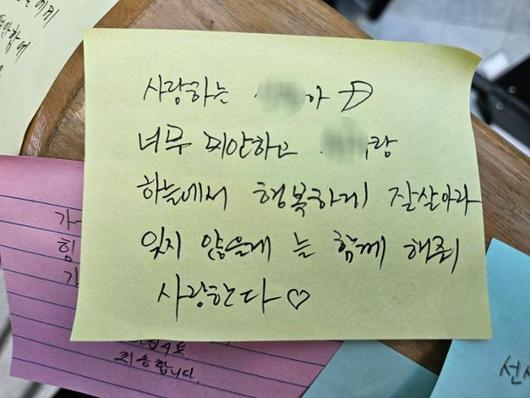 사랑하는 아
너무 미안하고 랑
하늘에서 행복하게 잘살아라
잊지 않을게 늘 함께 해줘
사랑한다♡
가
힘
죄송합니다.